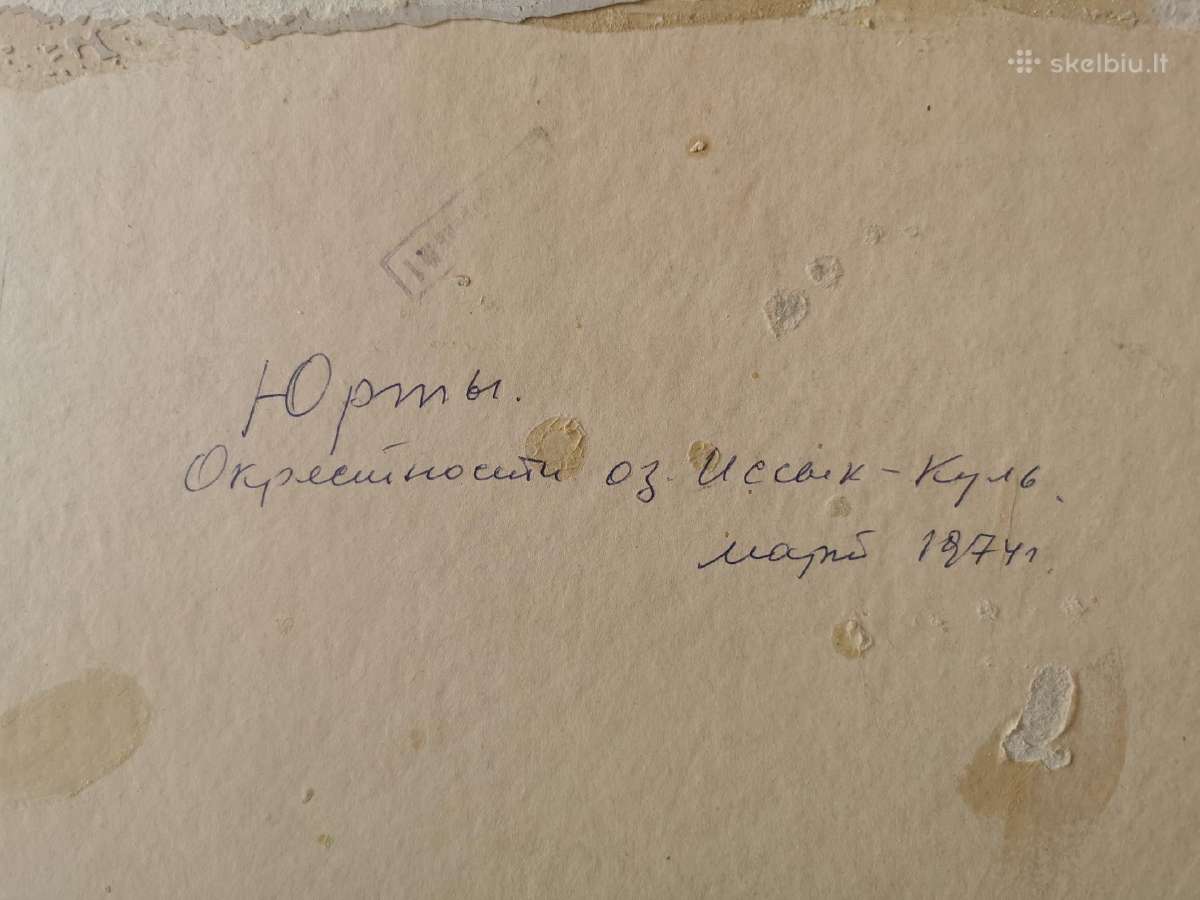 skelbiu.lt
Юрты.
Окрестности оз. Иссык-Куль.
март 1974г.